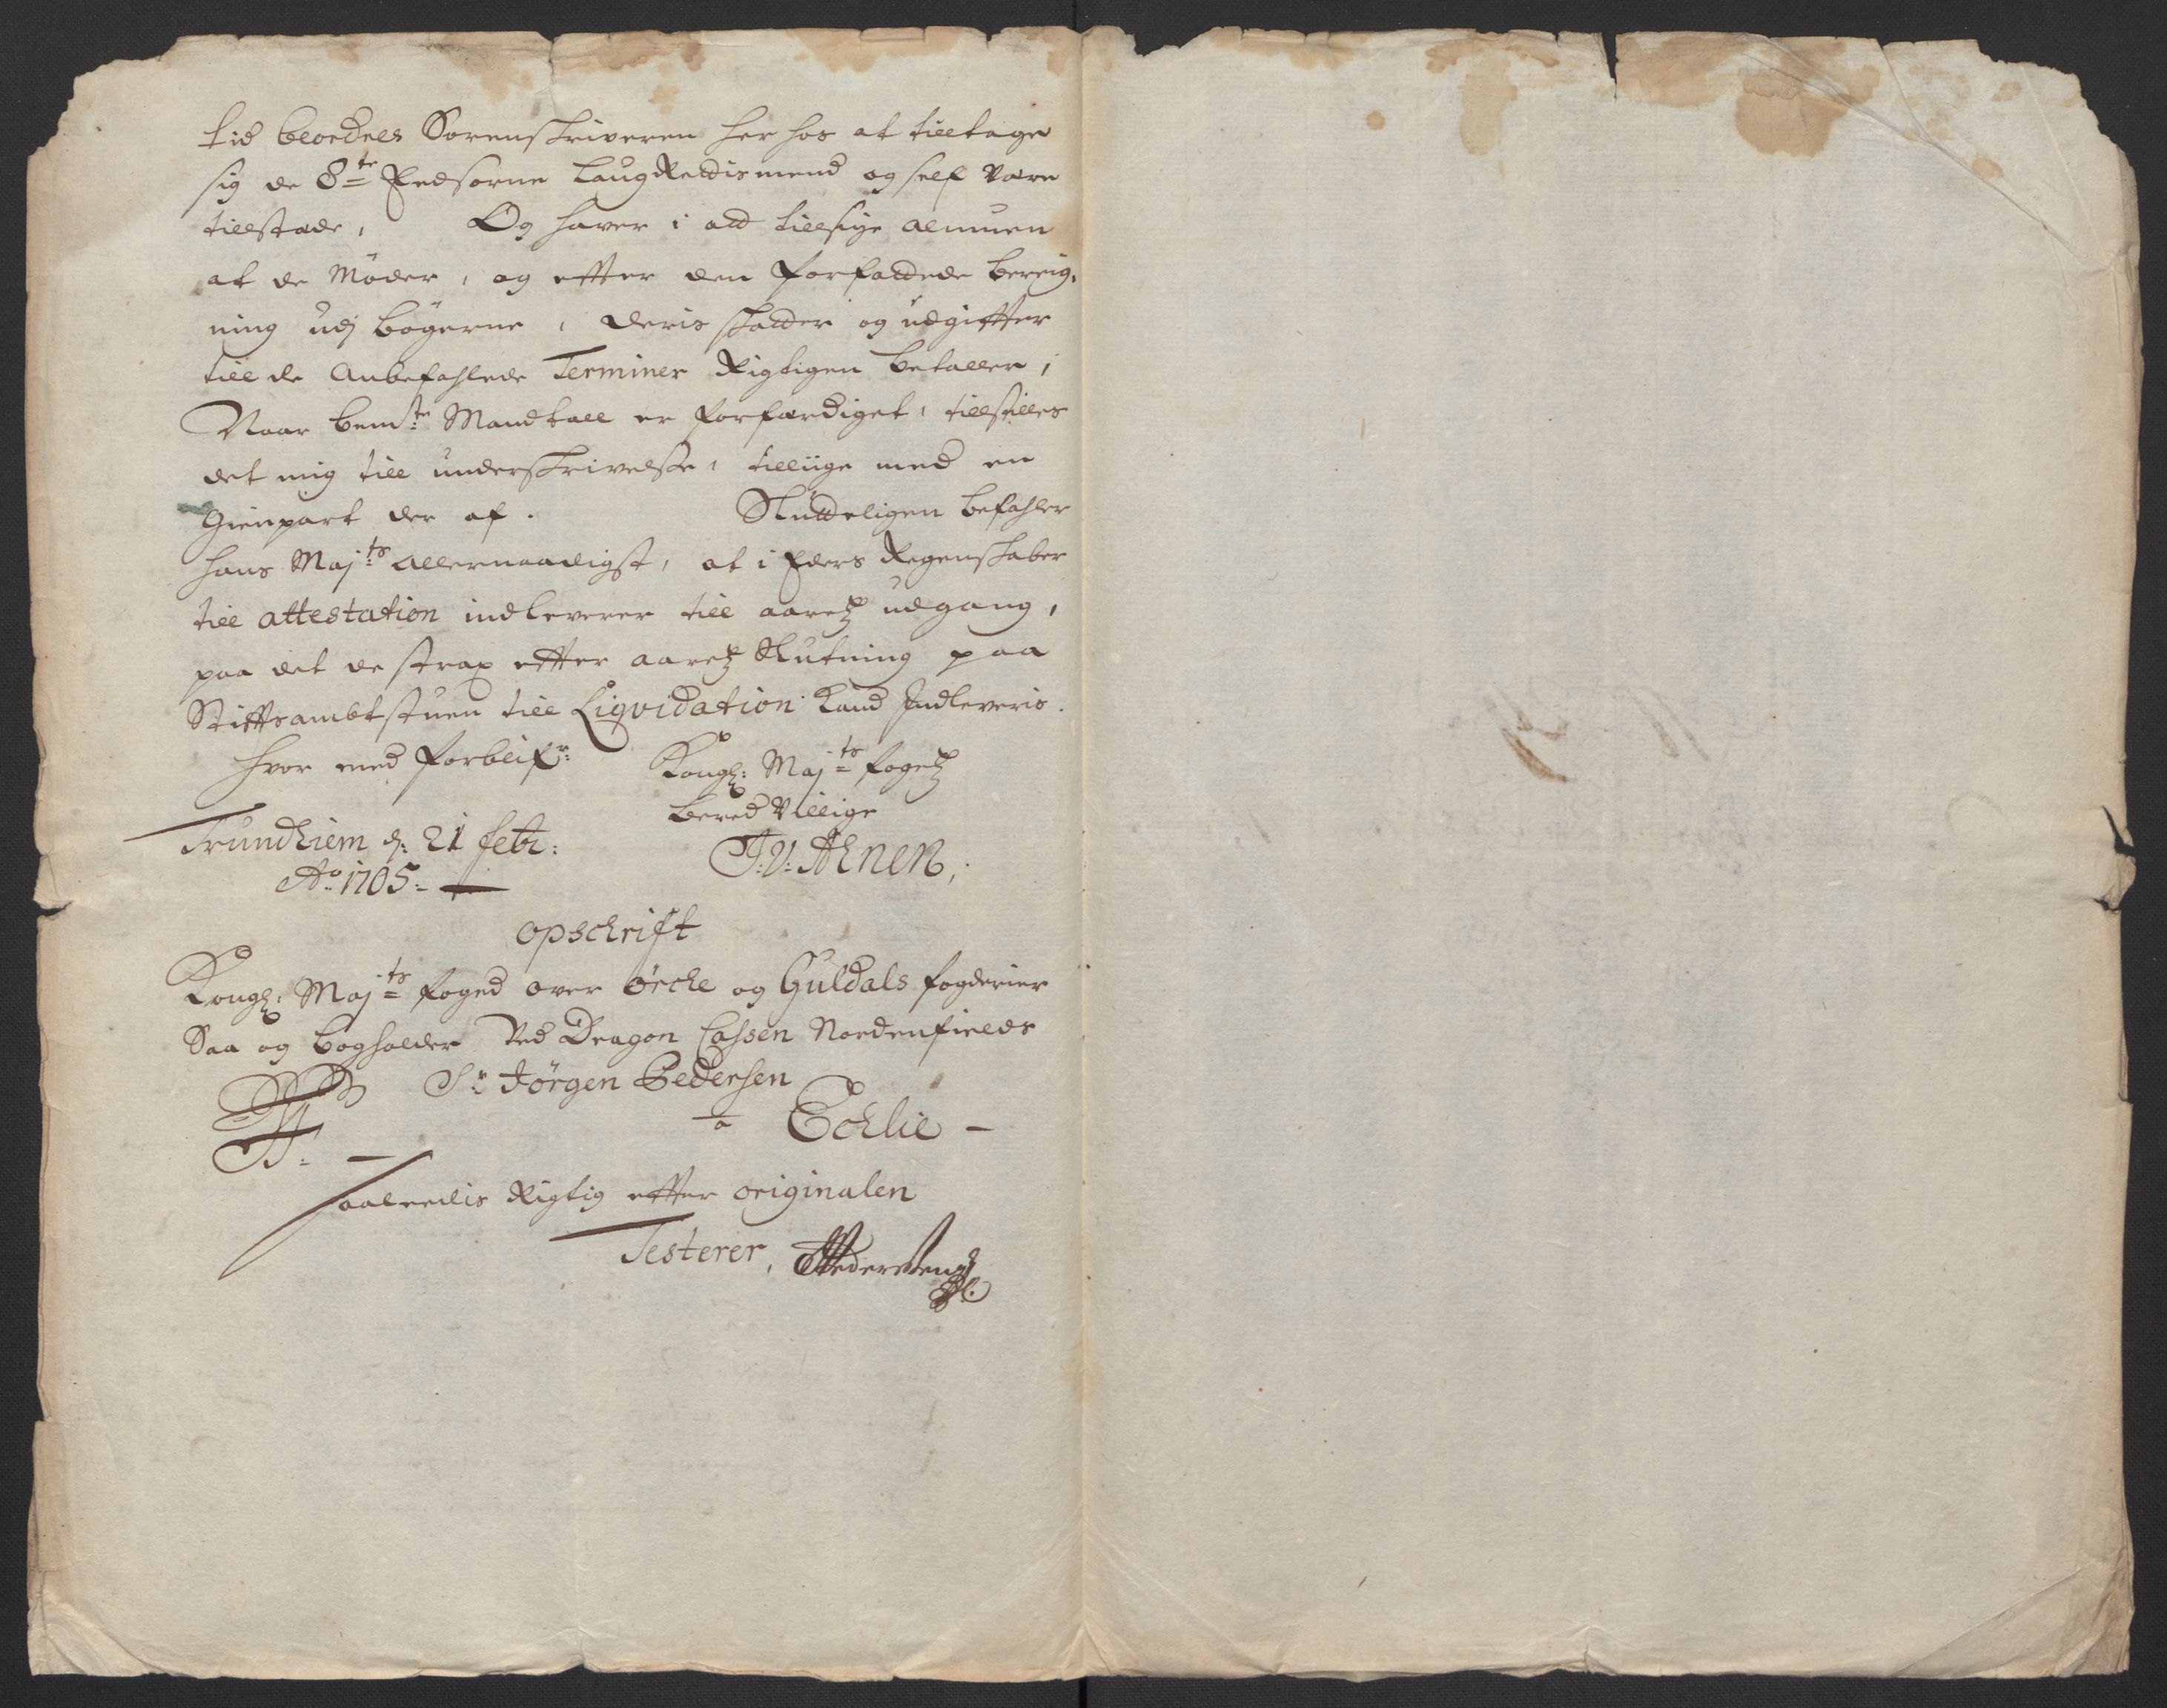 tid beordres Sorenskriveren her hos at tilltage
sig de 8te Eedsorne LaugRettismend og self være
tillstæde, Og haver i att tillsige almuen
at de Møder, og effter den forfattede bereig¸
ning udj bøgerne, deris skatter og udgiffter
till de Anbefahlede Terminer Rigtigen betaller,
Naar bemte Mandtall er forfærdiget, tillstilles
det mig till underskrivelse, tilliige med en
Gienpart der af. Slutteligen befahler
hans Majts allernaadigst, at i Eders Regenskaber
till attestation indleverer till aaretz udgang,
paa det de strax effter aaretz Slutning paa
Stifftsambtstuen till Liqvidation kand Indleveris.
hvor med forblifr: Kongl: Majts fogetz
beredVillige
Trundhiem d: 21 febr: J: V: Ahnen,
Ao 1705:
opschrift
Kongl: Majts foged over örche og Guldals fogderier
Saa og bogholder Ved Dragon Cassen Nordenfields
Sr Jörgen Pedersen
a
saaleedis Rigtig effter originalen
Testerer,